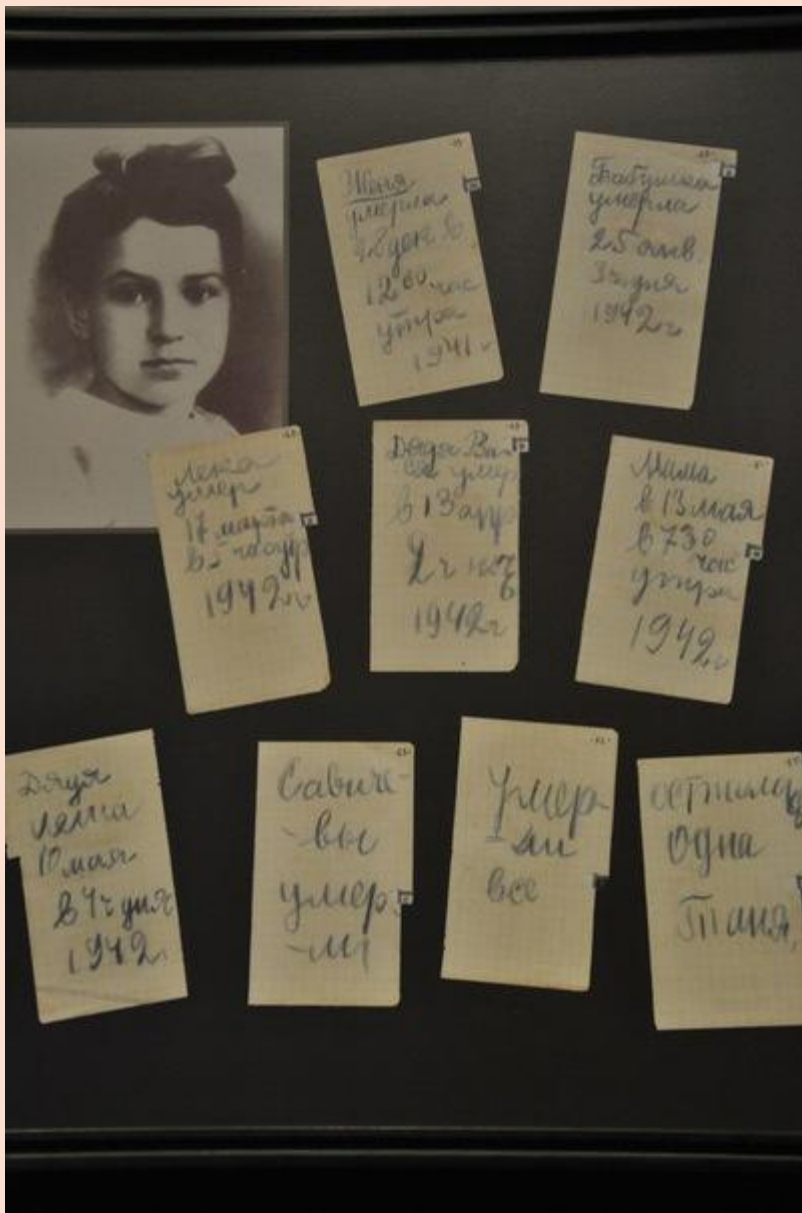 Женя
умерла
28 дек в
12 00 час
утра
1941 г
Бабушка
умерла
25 янв.
3 ч дня
1942 г
Лека
умер
17 марта
в 5 час утр
1942 г
Дядя Ва-
ся умер
в 13 апр
2 ч ночь
1942 г
Мама
в 13 мая
в 7 30
час
утра
1942 г
Дядя
Леша
10 мая
в 4 ч дня
1942 г
Савиче-
-вы
умер-
-ли
Умер-
-ли
все
осталась
одна
Таня